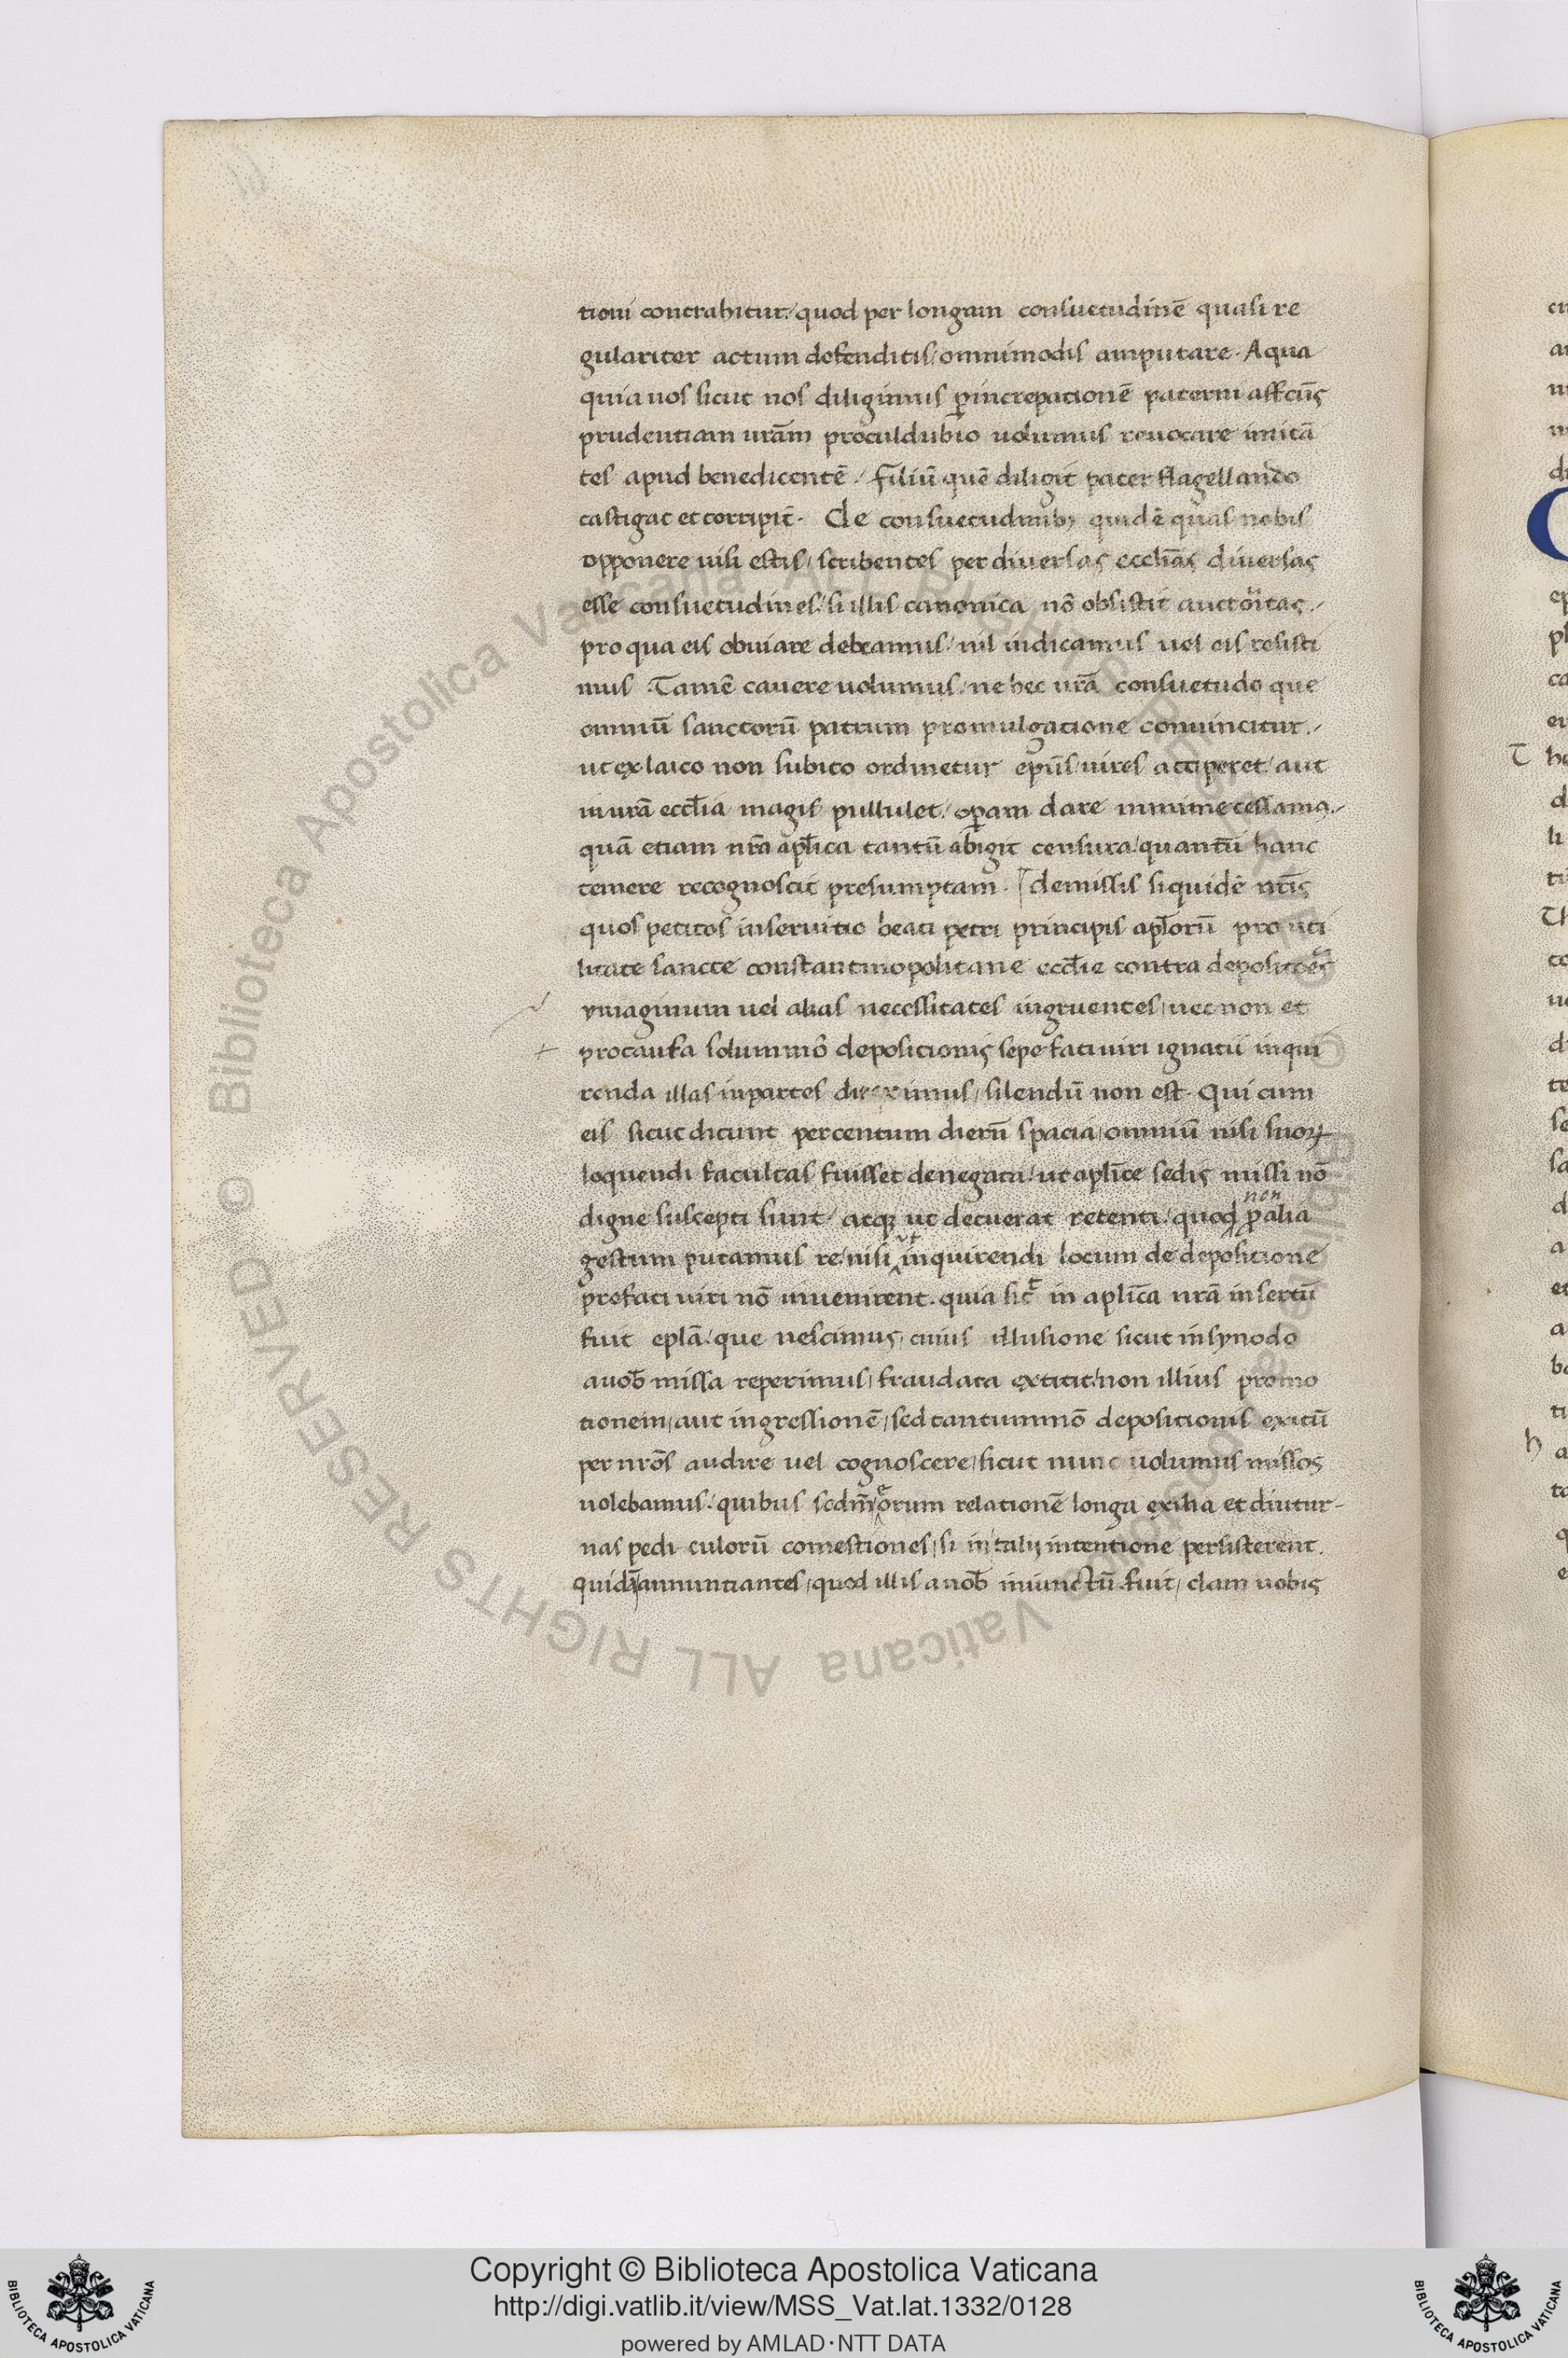 tioni contrahitur/ quod per longam consuetudinē quasi re
gulariter actum defenditis/ omnimodis amputare. A qua
quia uos sicut nos diligimus ꝑ increpationē paterni affcū̄s
prudentiam urām proculdubio uolumus reuocare imitā
tes apud benedicentē / Filiū quē diligit pater flagellando
castigat et corripit. De consuetudinibꝫ quidē quas nobis
opponere uisi estis/ scribentes per diuersas eccḽias diuersas
esse consuetudines/ si illis canonica nō obsistit auctōritas./
pro qua eis obuiare debeamus/ nil iudicamus uel eis resisti
mus. Tamē cauere uolumus/ ne hec urā consuetudo que
omniū sanctorū patrum promulgatione conuincitur./
ut ex laico non subito ordinetur ep̄us/ uires acciperet/ aut
in urā eccl̄ia magis pullulet/ oꝑam dare minime cessamꝰ./
quā etiam nr̄a ap̄lica tantū abigit censura/ quantū hanc
temere recognoscit presumptam. demissis siquidē nr̄is
quos petitos in seruitio beati petri principis ap̄lorū pro uti
litate sancte constantinopolitane eccl̄ie contra depositiōes
ymaginum uel alias necessitates ingruentes/ nec non et
pro causa solummō depositionis sepe fati uiri ignatii inqui
renda illas in partes direximus/ silendū non est. Qui cum
eis sicut dicunt per centum dierū spacia/ omniū nisi suoꝝ
loquendi facultas fuisset denegata/ ut aplīce sedis missi nō
digne suscepti sunt/ atqꝫ ut decuerat retenti/ quod non ꝓ alia
gestum putamus re/ nisi ut inquirendi locum de depositione
prefati uiri nō inuenirent. quia sict in aplīca nr̄a insertū
fuit eplā/ que nescimus cuius illusione sicut in synodo
a uob̄ missa reperimus/ fraudata extitit/ non illius promo
tionem/ aut ingressionē/ sed tantummō depositionis exitū
per nrōs audire uel cognoscere/ sicut nunc uolumus missos
uolebamus/ quibus scdm̄ eorum relationē longa exilia et diutur-
nas pedi culorū comestiones/ si in tali intentione persisterent.
quidā annuntiantes/ quod illis a uob̄ iniunctū fuit/ clam uobis
Copyright © Biblioteca Apostolica Vaticana
http://digi.vatlib.it/view/MSS_Vat.lat.1332/0128
powered by AMLAD·NTT DATA